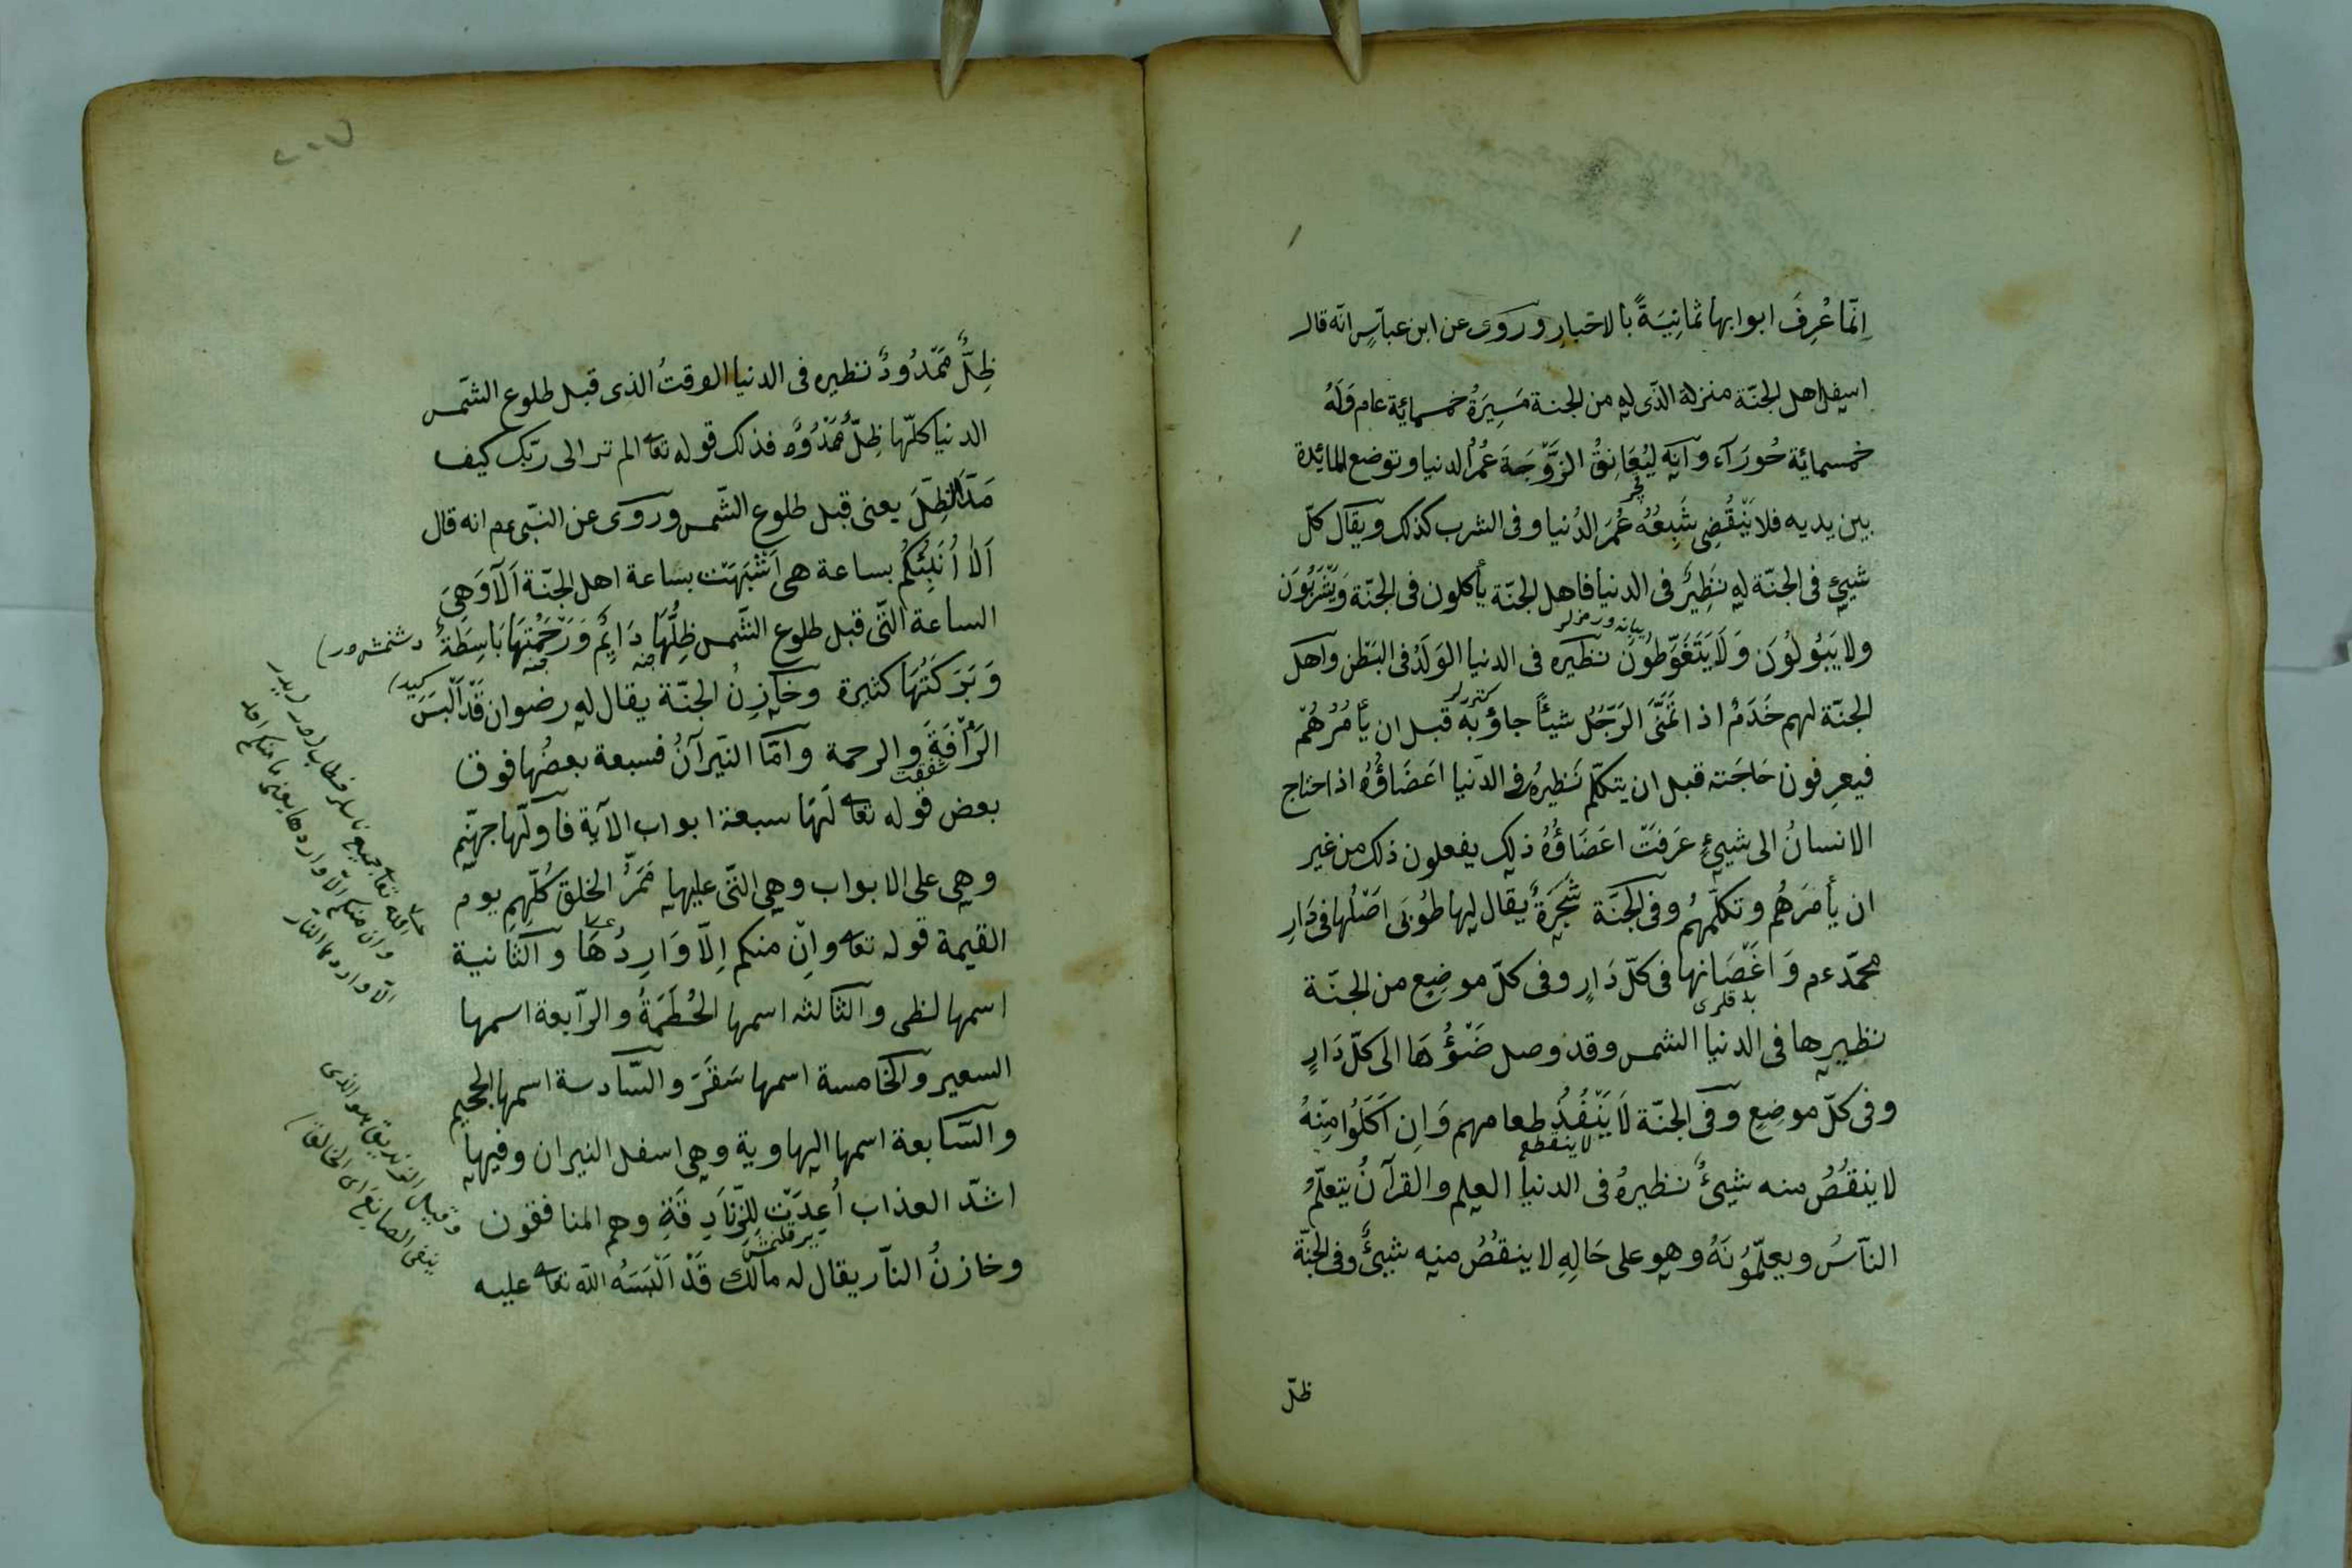 اِنّمَا عُرِفَ ابوابها ثمانِيَةً بالاخبارِ وروى عن ابن عباسٍ انّه قال
اسفل اهل الجنّة منزلة الذّى له من الجنة مَسِيرَةُ خمسمائة عام وَلَهُ
خمسمائة حُورَآء وانّه ليُعَانِقُ الزَّوْجَةَ عُمُرَ الدنيا وتوضع المائدة
بين يديه فلا يَنْقَضِى شَبِعُهُ عُمَرَ الدُنيا وفى الشرب كذلك ويقال كلّ
شيئٍ فى الجنّة له نَظِيرٌ فى الدنيا فاهل الجنّة يأكلون فى الجنّة وَيَشْرَبُونَ
ولا يَبُولُونَ وَلَا يَتَغَوَّطُونَ نظيره فى الدنيا الوَلَدُ فى البَطْن واهل
الجنّة لهم خَدَمٌ اذا تَمَنَّى الرَجُل شيئًا جاؤ به قبل ان يأمُرُهُمْ
فيعرفون حَاجَته قبل ان يتكلّم نَظيرُه فى الدّنيا اعَضَاؤُهُ اذا احتاج
الانسانُ الى شيئٍ عَرَفَتْ اعَضَاؤُهُ ذلك يفعلون ذلك من غير
ان يأمَرَهُم وتكلّمهُم وفى الجنَّة شَجَرَةٌ يقال لها طُوبَى اصْلُها فى دَارِ
محمّد عم وَاَغْصَانها فى كلّ دَارٍ وفى كلّ موضِعٍ من الجنّة
نظيرها فى الدنيا الشمس وقد وصل ضَوْؤُهَا الى كلّ دَارٍ
وفى كلّ موضِعٍ وفى الجنّة لَا يَنْفُدُ طعامهم وَاِن اَكَلُوا مِنْهُ
لا ينقطع
لا ينقُصُ منه شيئٌ نظيرهُ فى الدنيا العلم والقرآنُ يتعلّمُ
النّاسُ ويعلّمُونَهُ وهو على حَالِهِ لا ينقُصُ منه شيئٌ وفى الجنّة
ظلّ
ظِلٌّ مَمْدُودٌ نظيره فى الدنيا الوقتُ الذى قبل طلوع الشّمس
الدنيا كلّها ظِلٌّ مَمْدُودٌ فذلك قوله تعا الم تر الى ربّك كيف
مَدَّ الظِلَّ يعنى قبل طلوع الشّمس وروى عن النبّى عم انه قال
اَلَا اُنَبِئُكُم بساعة هى اَشْبَهَتْ بساعة اهل الجنّة اَلَا وَهِىَ
الساعة التّى قبل طلوع الشّمس ظِلُّهَا دَايِمٌ وَرَحْمَتُهَا بَاسِطَةٌ
وَبَرَكَتُهَا كثيرة وخازِنُ الجنّة يقال له رضوان قَدْ اَلْبَسَ
الرَأْفَةَ والرحمة وامّا النّيرانُ فسبعة بعضُها فوق
شفقت
بعض قوله تعا لَهَا سبعة ابواب الآية فاولّها جهنّم
وهى على الابواب وهى التّى عليها مَمَرُّ الخلق كُلّهِم يوم
القيمة قوله تعا وانْ منكم اِلّا وَارِدُهَا والثانية
اسمها لظى والثالثه اسمها الحُطَمَةُ والرّابعة اسمها
السعير والخامسة اسمها سَقَرَ والسّادسة اسمها الجحيم
والسّابعة اسمها الهاوية وهى اسفل النيران وفيها
اشدّ العذاب اُعِدَتْ لِلزّنَادِقَةِ وهم المنافقون
وخازنُ النّار يقال له مالك قَدْ اَلْبَسَهُ اللّه تعا عليه
وان منكم الّا واردها
الّا واردها النّار